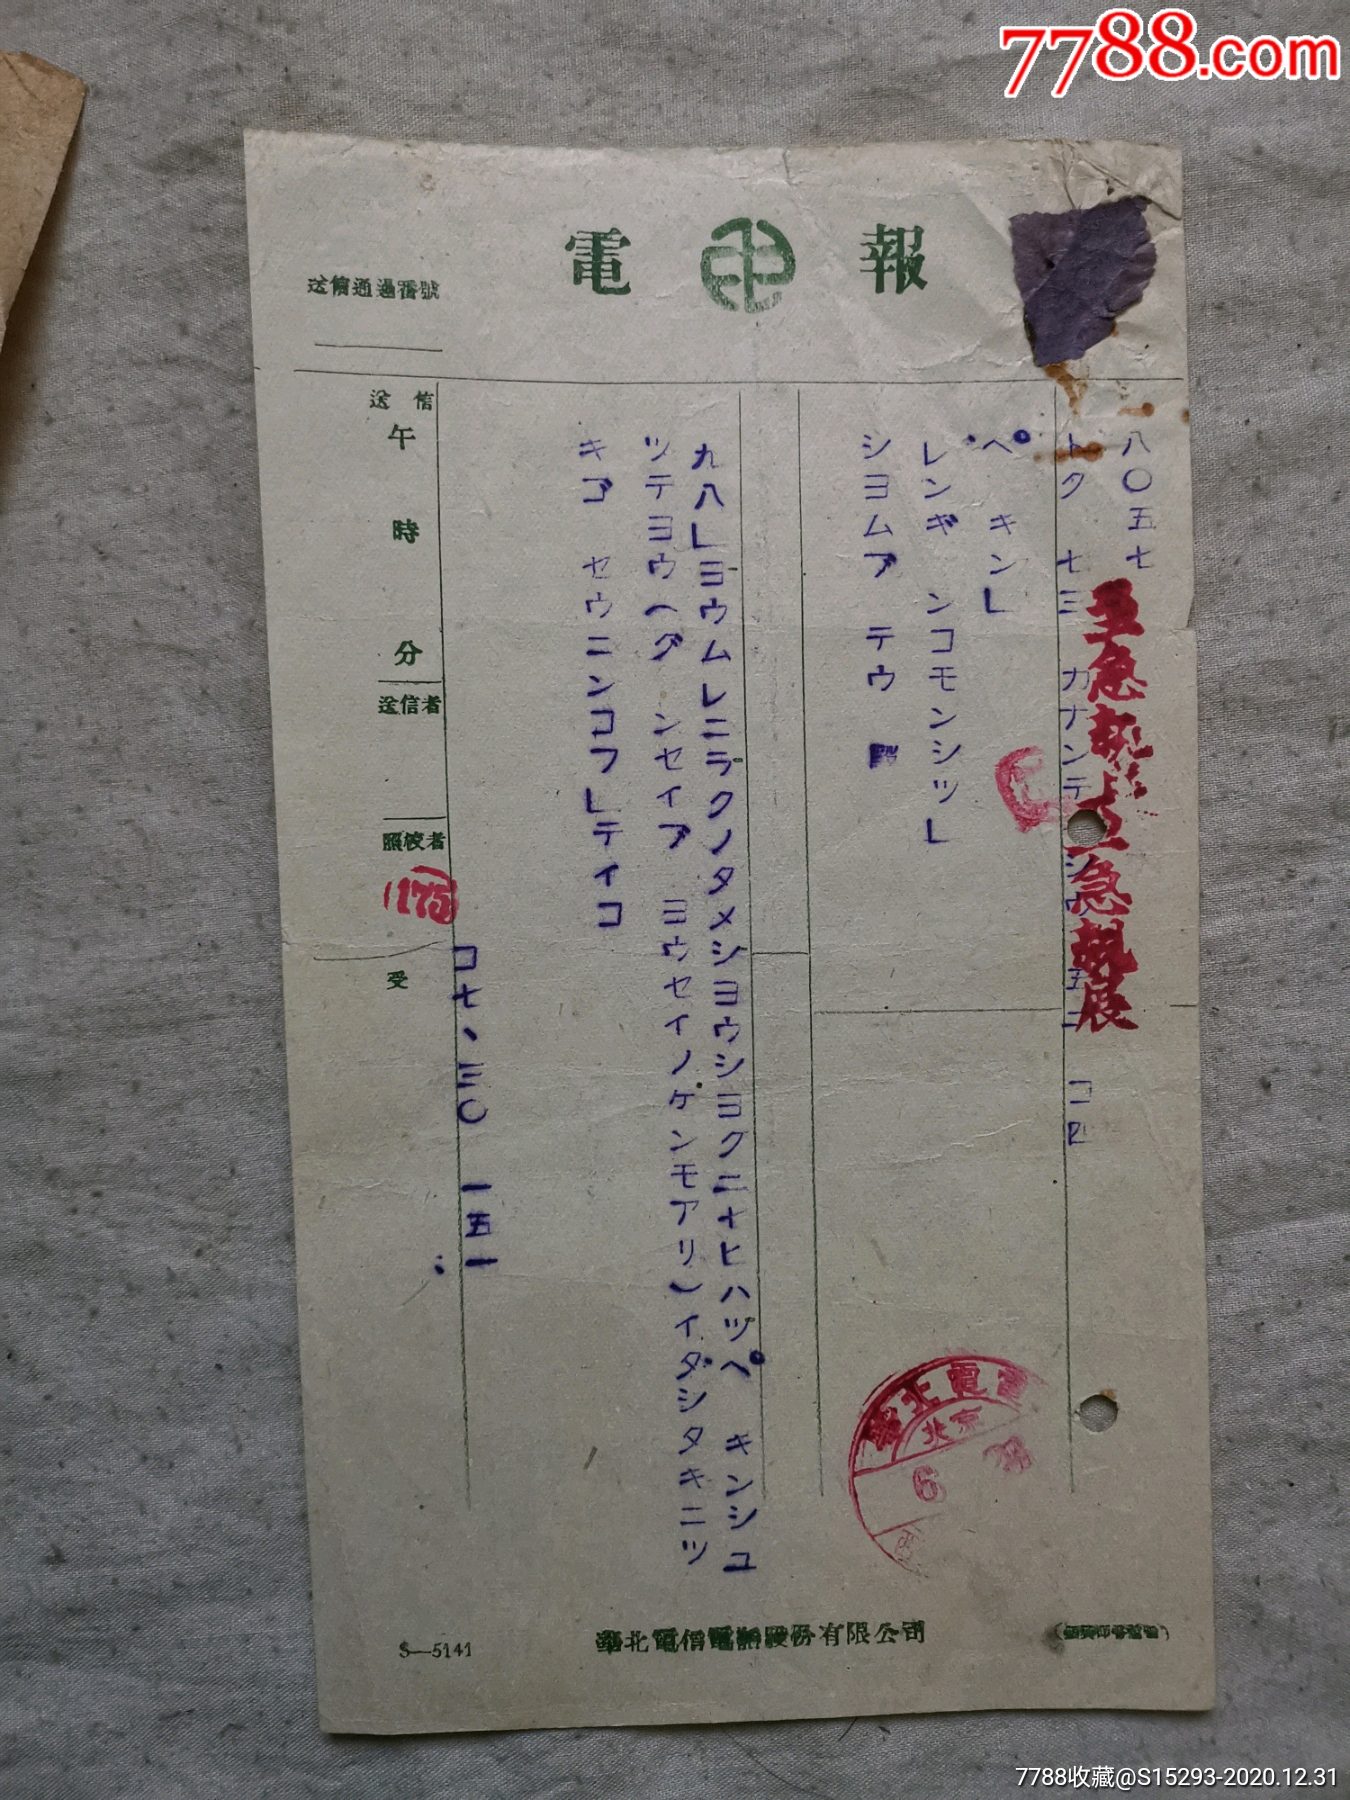 7788.com
電報
送信通過番號
八〇五七
トク 七三 カナンテ 五三 コ四
至急報 至急親展
ペキン」
レンギンコモンシツ」
シヨムブテウ
九八」ヨウムレニラクノタメシヨウシヨクニナヒハツペキンシユ
ツテヨウヘダンセイブヨウセイノケンモアリ)イダシタキニツ
キゴセウニンコフ」テイコ
コ七、三〇 一五一
送信
午
時
分
送信者
照校者
175
受
華北電電
北京
6
S—5141
華北電信電話股份有限公司
7788收藏@S15293-2020.12.31